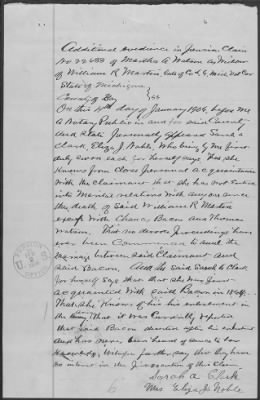 Additional evidence in Pension Claim
of Martha A Watson as Widow
of William R Martin late of Co
State of Michigan
County of
On this day of January 1906, before me
a Notary Public in and for said County
and State Personally appeared Sarah
Clark, Eliza J. Noble, Who being by me first
duly sworn each for herself says that she
knows from close personal acquaintance
with the claimant that she has not entered
into Marital relations with anyone since
the death of Said William R Martin
except With Bacon and Thomas
Watson. That no divorce Proceedings have
ever been Commenced to annul the
Marriage between said Claimant and
said Bacon. And she said Sarah A Clark
for herself says that she Was
acquainted With Bacon in
That she knows of his enlistment in
the Army, that it was Currently reported
that said Bacon deserted after his enlistment
and has never been heard of since to her
knowledge. Witnesses further say that they have
no interest in the Prosecution of this Claim.
Sarah A. Clark
Mrs Eliza J. Noble